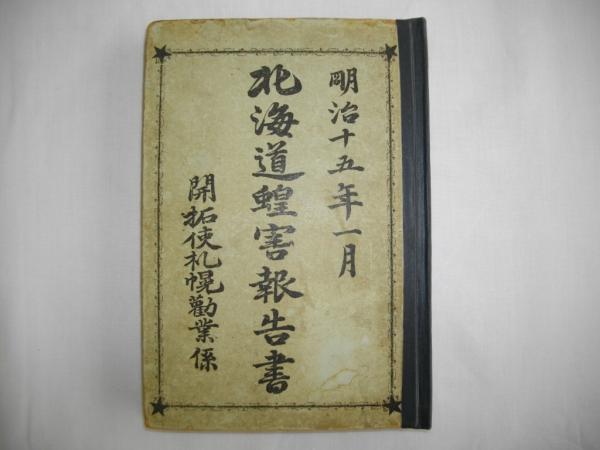 明治十五年一月
北海道蝗害報告書
開拓使札幌勸業係